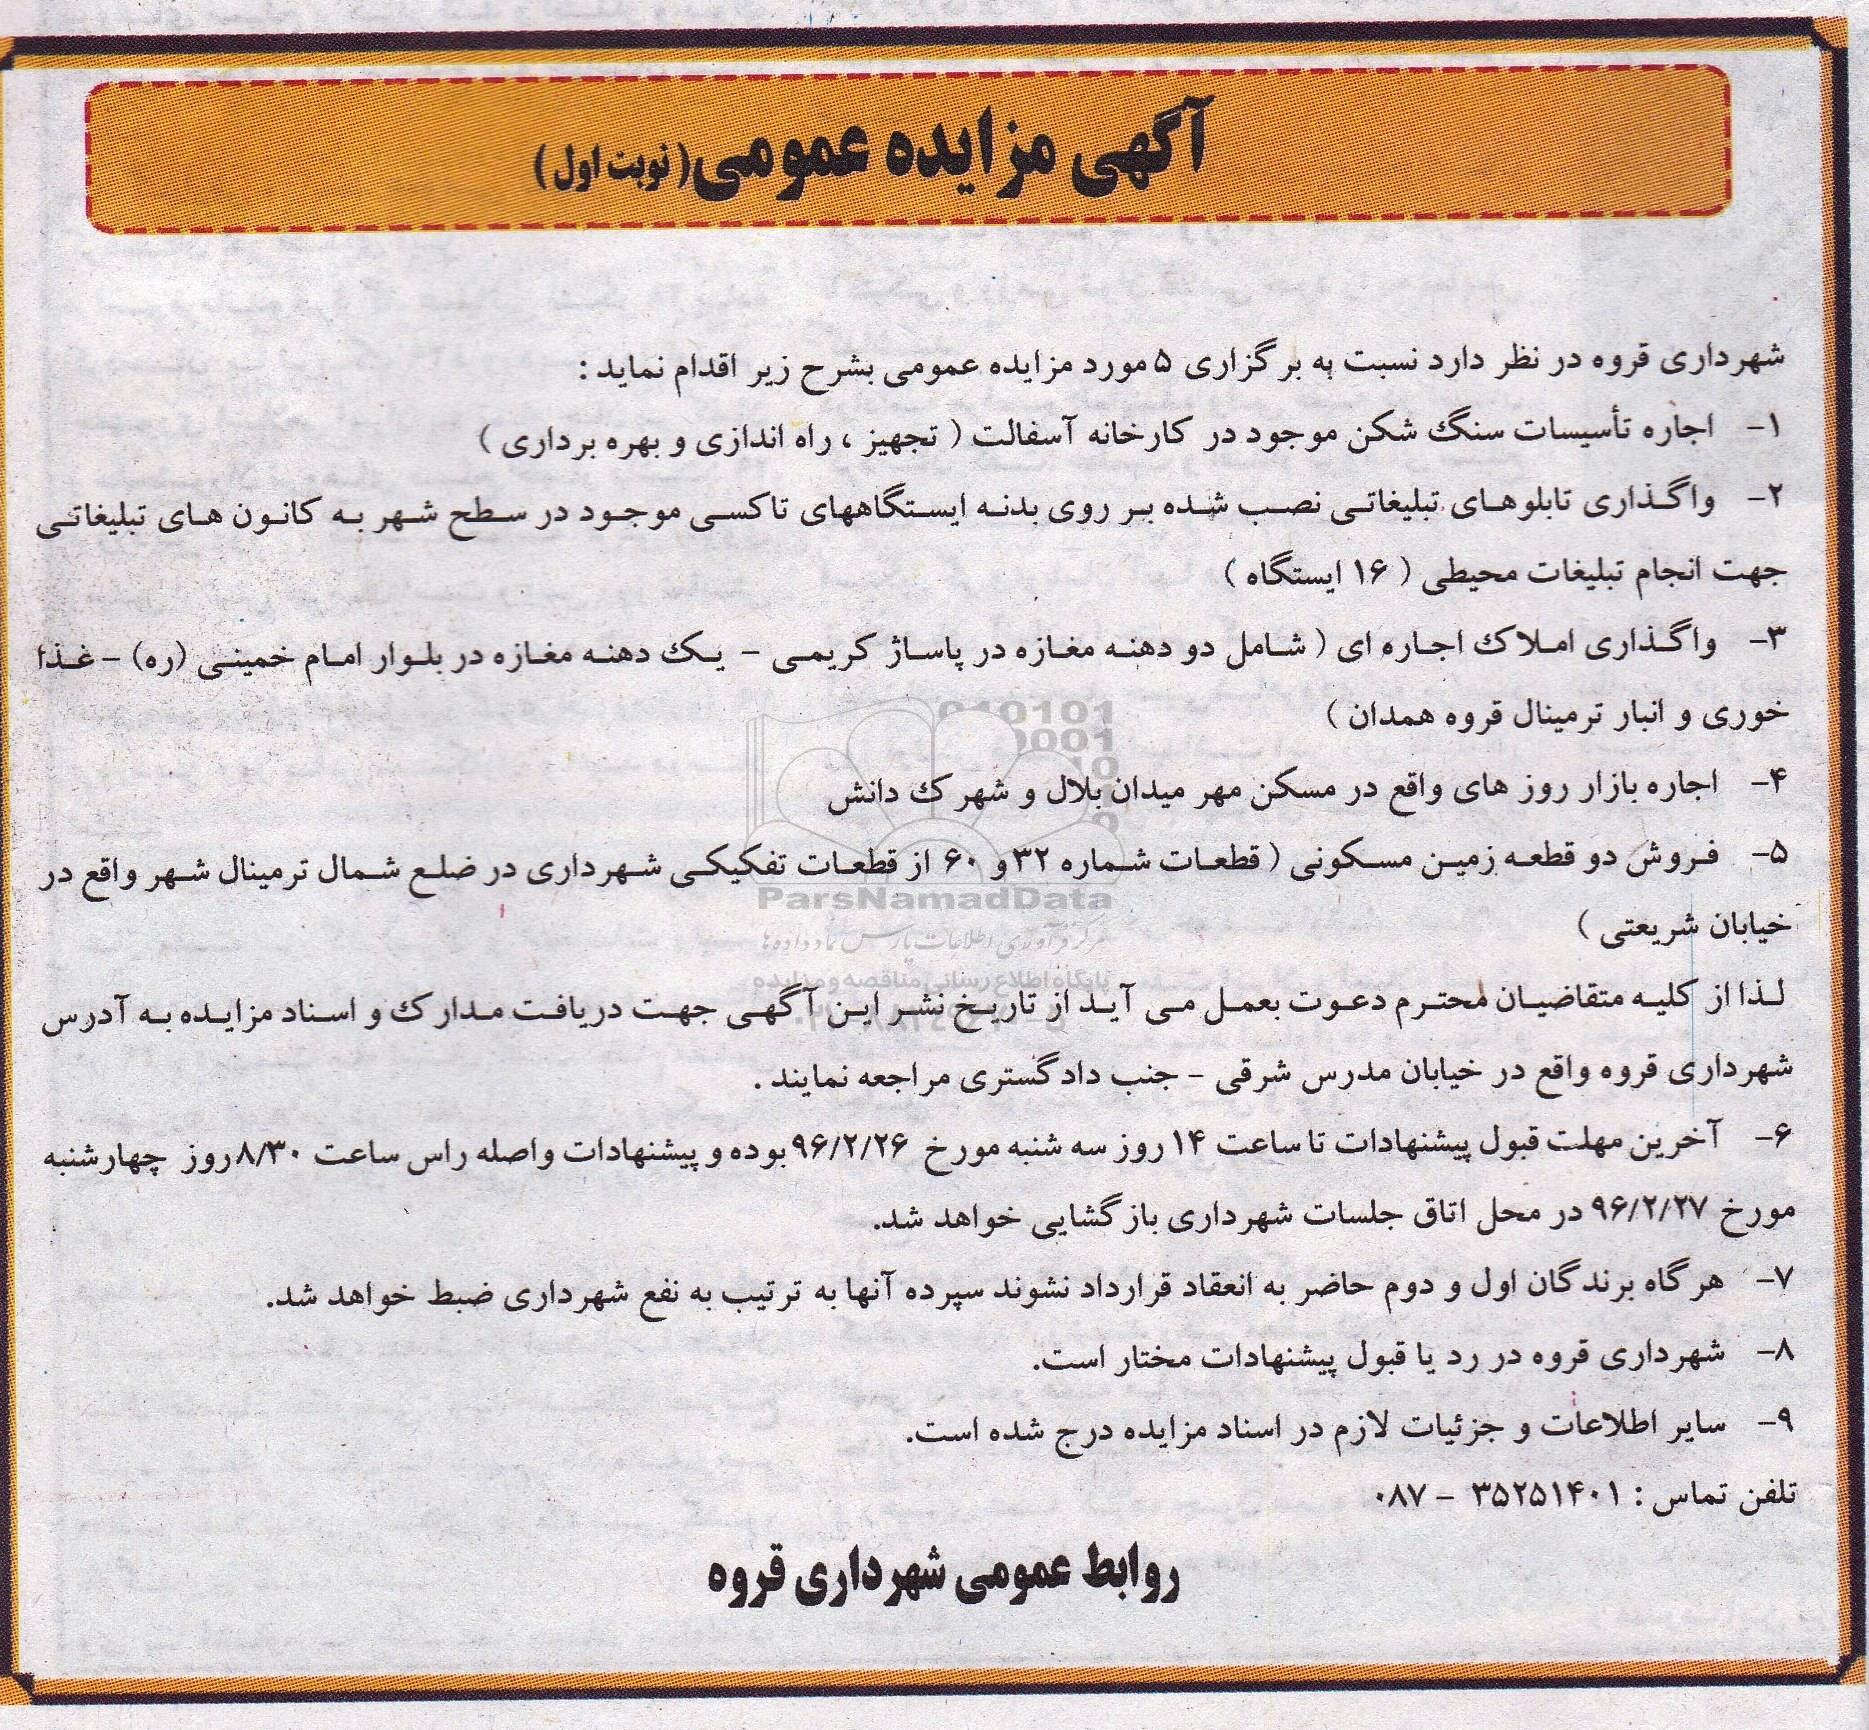 آگهی مزایده عمومی (نوبت اول)
شهرداری قروه در نظر دارد نسبت به برگزاری ۵ مورد مزایده عمومی بشرح زیر اقدام نماید :
۱- اجاره تأسیسات سنگ شکن موجود در کارخانه آسفالت ( تجهیز ، راه اندازی و بهره برداری )
۲- واگذاری تابلوهای تبلیغاتی نصب شده بر روی بدنه ایستگاههای تاکسی موجود در سطح شهر به کانون های تبلیغاتی
جهت انجام تبلیغات محیطی ( ۱۶ ایستگاه )
۳- واگذاری املاک اجاره ای ( شامل دو دهنه مغازه در پاساژ کریمی - یک دهنه مغازه در بلوار امام خمینی (ره) - غذا
خوری و انبار ترمینال قروه همدان )
۴- اجاره بازار روز های واقع در مسکن مهر میدان بلال و شهرک دانش
۵- فروش دو قطعه زمین مسکونی ( قطعات شماره ۳۲ و ۶۰ از قطعات تفکیکی شهرداری در ضلع شمال ترمینال شهر واقع در
خیابان شریعتی )
لذا از کلیه متقاضیان محترم دعوت بعمل می آید از تاریخ نشر این آگهی جهت دریافت مدارک و اسناد مزایده به آدرس
شهرداری قروه واقع در خیابان مدرس شرقی - جنب دادگستری مراجعه نمایند .
۶- آخرین مهلت قبول پیشنهادات تا ساعت ۱۴ روز سه شنبه مورخ ۹۶/۲/۲۶ بوده و پیشنهادات واصله راس ساعت ۸/۳۰ روز چهارشنبه
مورخ ۹۶/۲/۲۷ در محل اتاق جلسات شهرداری بازگشایی خواهد شد.
۷- هرگاه برندگان اول و دوم حاضر به انعقاد قرارداد نشوند سپرده آنها به ترتیب به نفع شهرداری ضبط خواهد شد.
۸- شهرداری قروه در رد یا قبول پیشنهادات مختار است.
۹- سایر اطلاعات و جزئیات لازم در اسناد مزایده درج شده است.
تلفن تماس : ۳۵۲۵۱۴۰۱ - ۰۸۷
روابط عمومی شهرداری قروه
ParsNamadData
مرکز فرآوری اطلاعات پارس نماد داده‌ها
پایگاه اطلاع رسانی مناقصه و مزایده